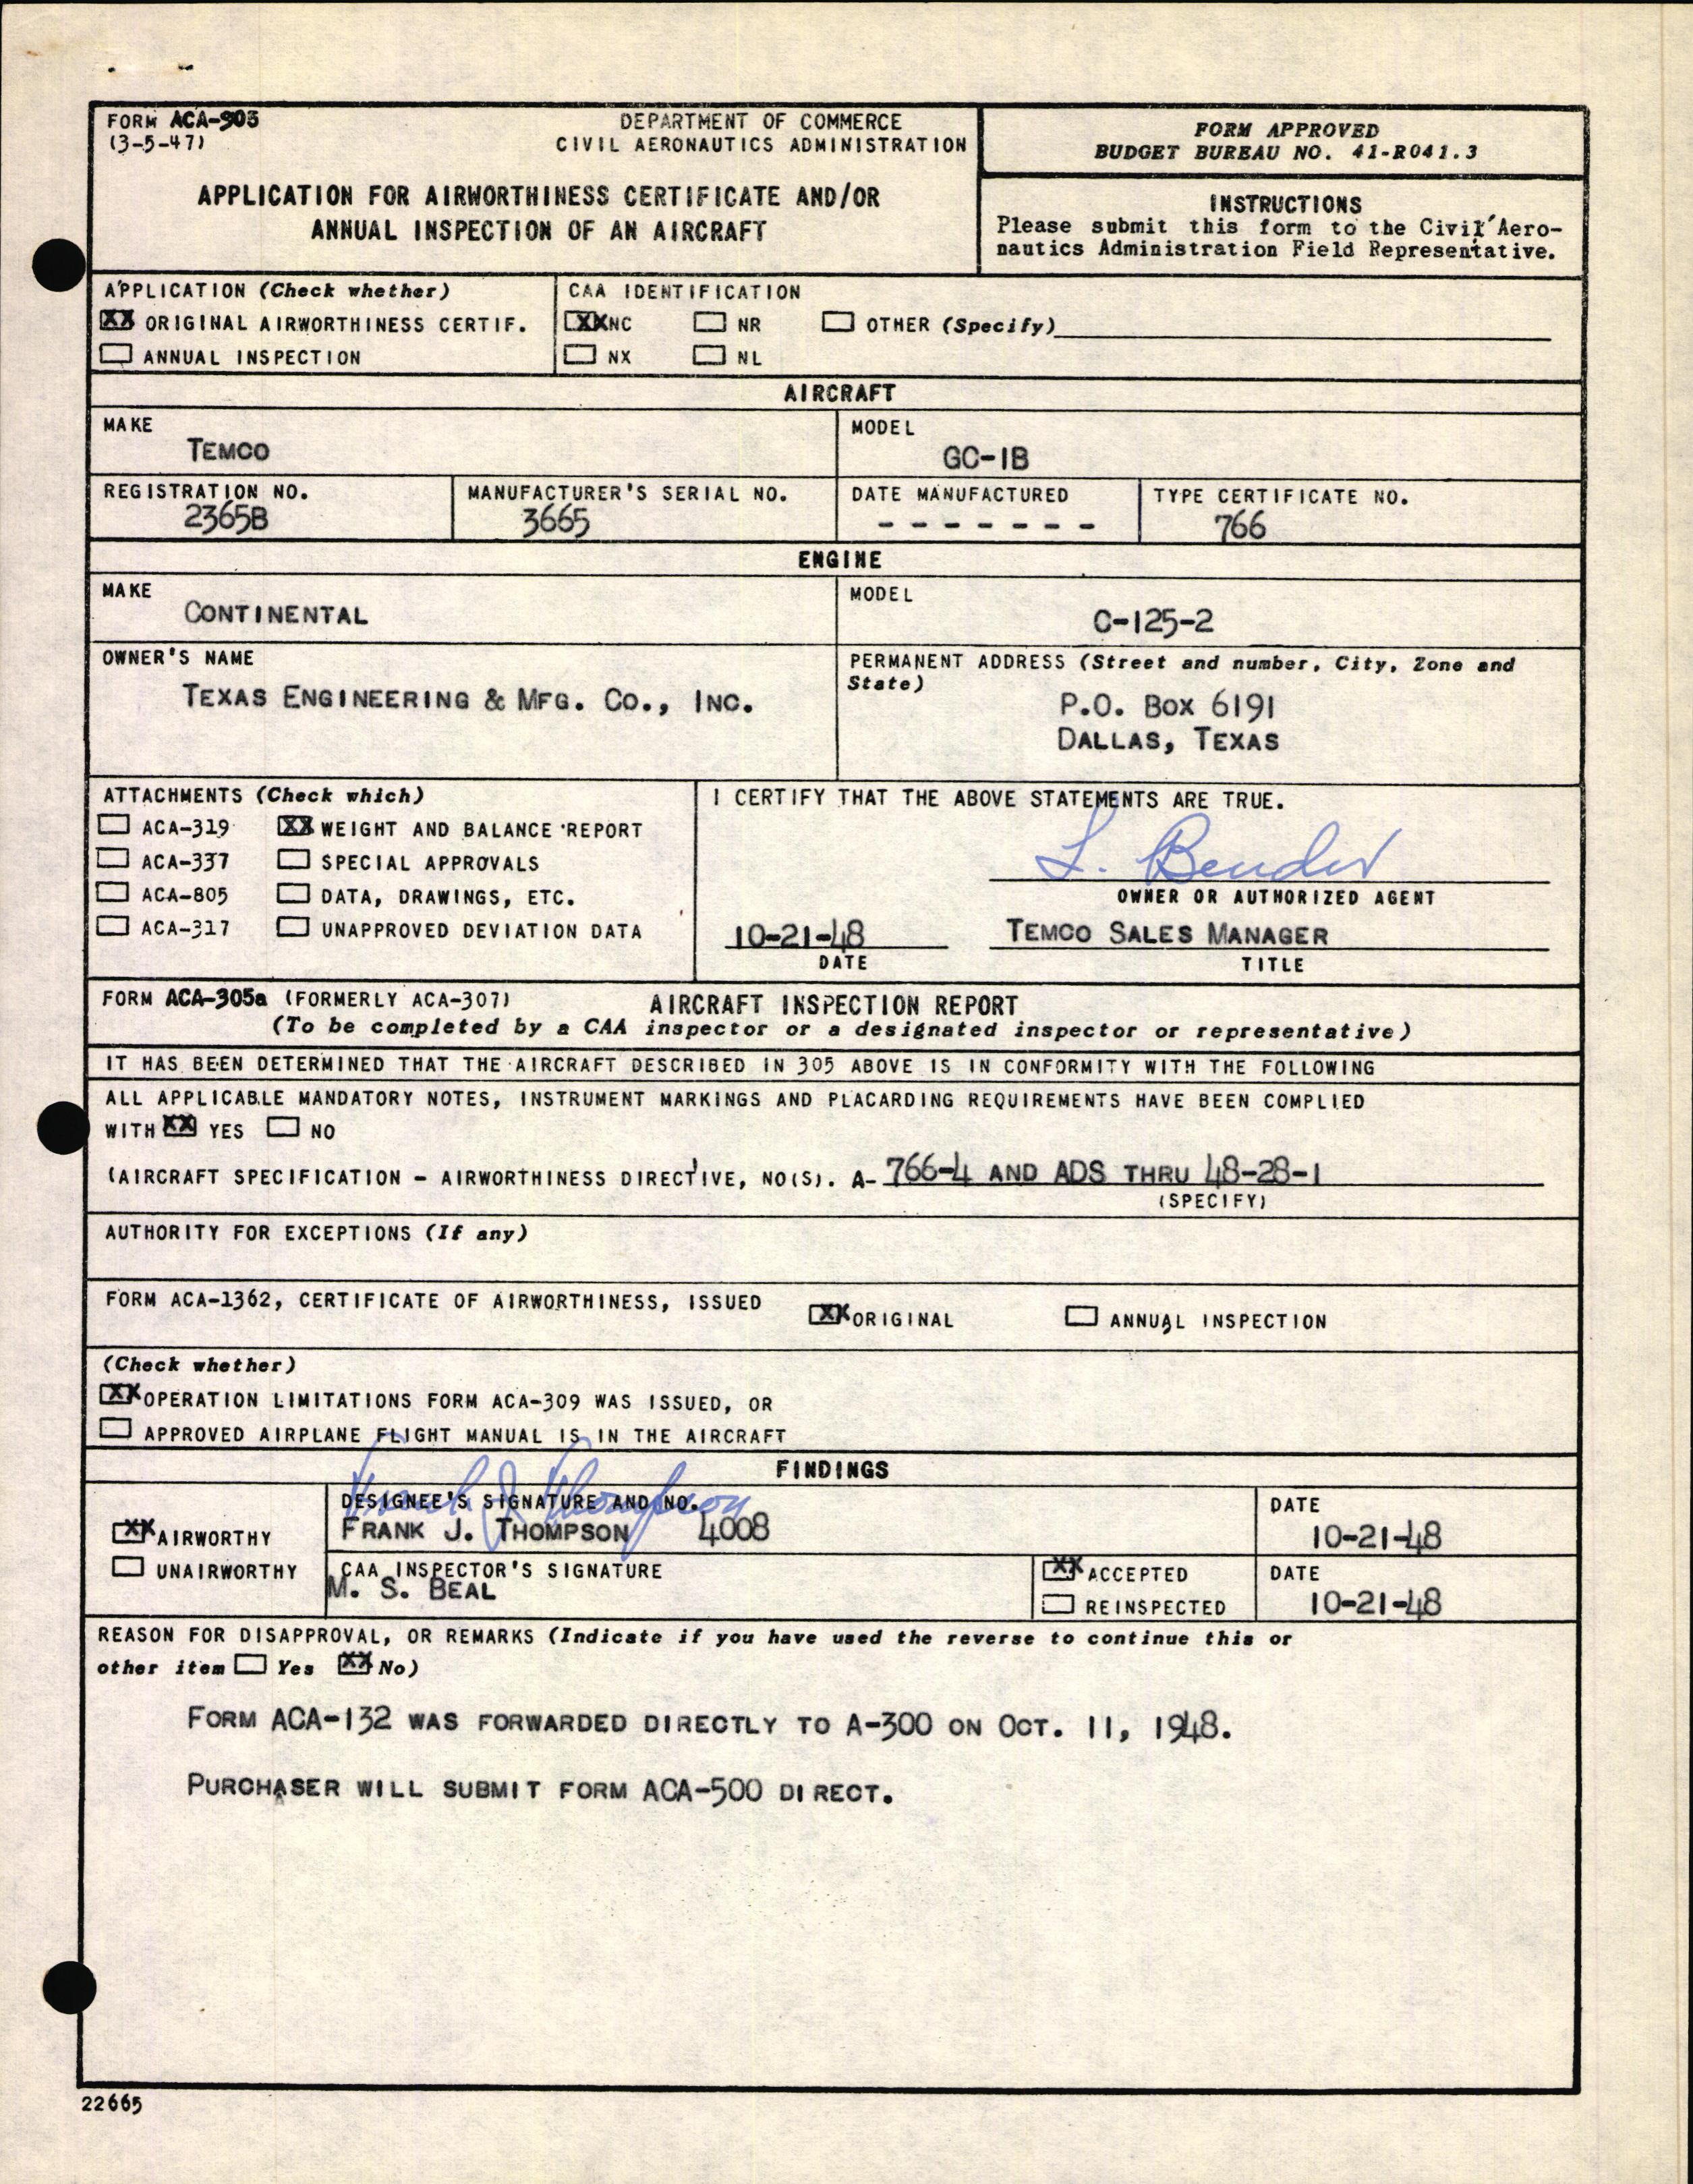 FORM ACA-305
(3-5-47)
DEPARTMENT OF COMMERCE
CIVIL AERONAUTICS ADMINISTRATION
APPLICATION FOR AIRWORTHINESS CERTIFICATE AND/OR
ANNUAL INSPECTION OF AN AIRCRAFT
FORM APPROVED
BUDGET BUREAU NO. 41-R041.3
INSTRUCTIONS
Please submit this form to the Civil Aero-
nautics Administration Field Representative.
APPLICATION (Check whether)
XX ORIGINAL AIRWORTHINESS CERTIF.
ANNUAL INSPECTION
CAA IDENTIFICATION
XX NC NR OTHER (Specify)
NX NL
AIRCRAFT
MAKE
TEMCO
MODEL
GC-1B
REGISTRATION NO.
2365B
MANUFACTURER'S SERIAL NO.
3665
DATE MANUFACTURED
- - - - - - -
TYPE CERTIFICATE NO.
766
ENGINE
MAKE
CONTINENTAL
MODEL
C-125-2
OWNER'S NAME
TEXAS ENGINEERING & MFG. CO., INC.
PERMANENT ADDRESS (Street and number, City, Zone and
State)
P.O. BOX 6191
DALLAS, TEXAS
ATTACHMENTS (Check which)
ACA-319 XX WEIGHT AND BALANCE REPORT
ACA-337 SPECIAL APPROVALS
ACA-805 DATA, DRAWINGS, ETC.
ACA-317 UNAPPROVED DEVIATION DATA
I CERTIFY THAT THE ABOVE STATEMENTS ARE TRUE.
L. Bender
OWNER OR AUTHORIZED AGENT
10-21-48 TEMCO SALES MANAGER
DATE TITLE
FORM ACA-305a (FORMERLY ACA-307) AIRCRAFT INSPECTION REPORT
(To be completed by a CAA inspector or a designated inspector or representative)
IT HAS BEEN DETERMINED THAT THE AIRCRAFT DESCRIBED IN 305 ABOVE IS IN CONFORMITY WITH THE FOLLOWING
ALL APPLICABLE MANDATORY NOTES, INSTRUMENT MARKINGS AND PLACARDING REQUIREMENTS HAVE BEEN COMPLIED
WITH XX YES NO
(AIRCRAFT SPECIFICATION - AIRWORTHINESS DIRECTIVE, NO(S). A- 766-4 AND ADS THRU 48-28-1
(SPECIFY)
AUTHORITY FOR EXCEPTIONS (If any)
FORM ACA-1362, CERTIFICATE OF AIRWORTHINESS, ISSUED XX ORIGINAL ANNUAL INSPECTION
(Check whether)
XX OPERATION LIMITATIONS FORM ACA-309 WAS ISSUED, OR
APPROVED AIRPLANE FLIGHT MANUAL IS IN THE AIRCRAFT
FINDINGS
XX AIRWORTHY
UNAIRWORTHY
Frank J. Thompson
DESIGNEE'S SIGNATURE AND NO.
FRANK J. THOMPSON 4008
DATE
10-21-48
CAA INSPECTOR'S SIGNATURE
M. S. BEAL
XX ACCEPTED
REINSPECTED
DATE
10-21-48
REASON FOR DISAPPROVAL, OR REMARKS (Indicate if you have used the reverse to continue this or
other item Yes XX No)
FORM ACA-132 WAS FORWARDED DIRECTLY TO A-300 ON OCT. 11, 1948.
PURCHASER WILL SUBMIT FORM ACA-500 DIRECT.
22665